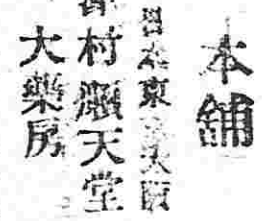 本舖
日本東京大阪
村灝天堂
大藥房